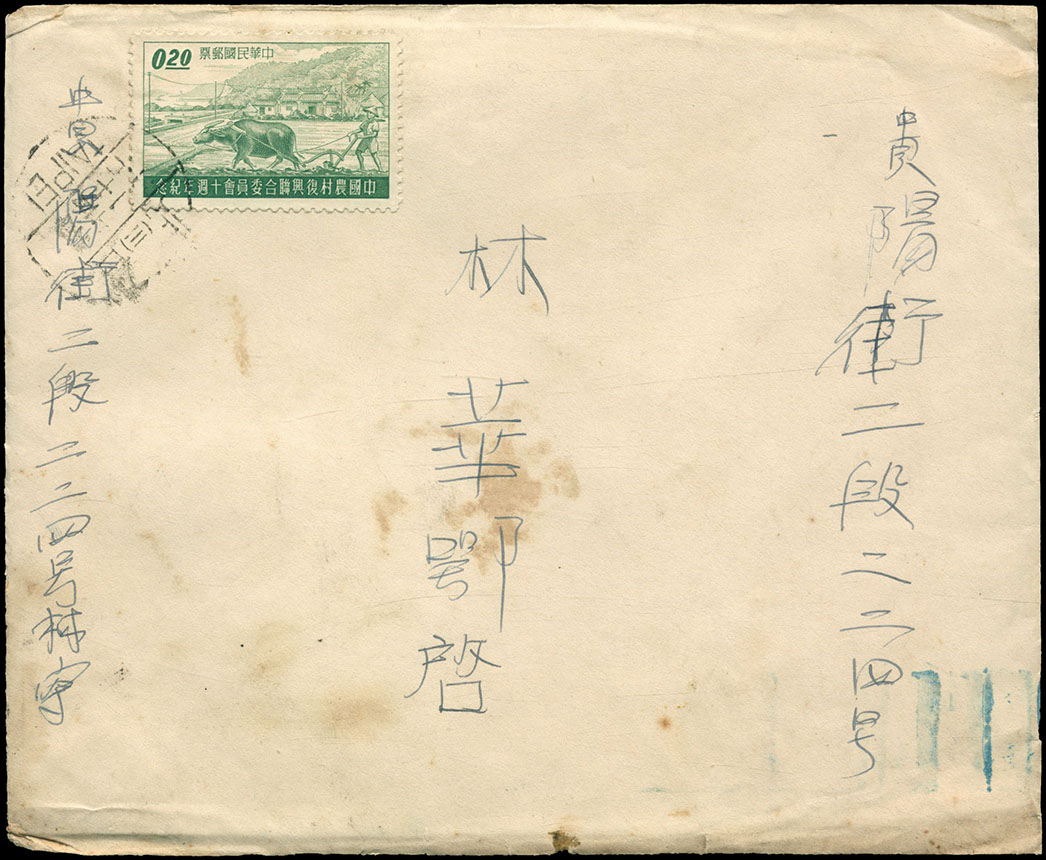 貴陽街二段二二四号
林華鄂啓
貴陽街二段二二四号林寄
0.20
中華民國郵票
中國農村復興聯合委員會十週年紀念
TAIPEI
(三)